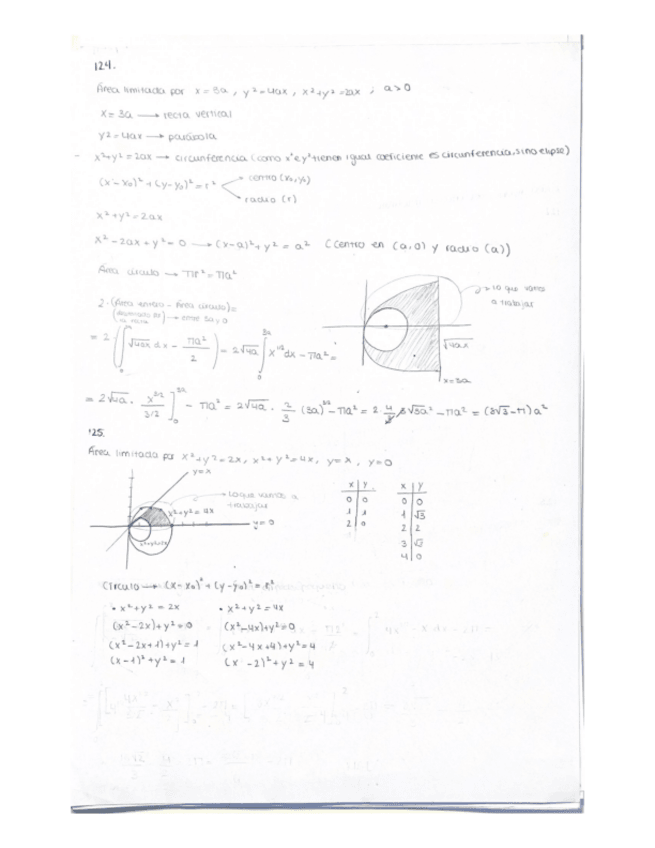 124.
Área limitada por x = 3a, y² = 4ax, x²+y² = 2ax ; a>0
x = 3a → recta vertical
y² = 4ax → parábola
- x²+y² = 2ax → circunferencia (como x² e y² tienen igual coeficiente es circunferencia, sino elipse)
(x-x₀)² + (y-y₀)² = r²
centro (x₀,y₀)
radio (r)
x²+y² = 2ax
x² - 2ax + y² = 0 → (x-a)² + y² = a² (Centro en (a,0) y radio (a))
Área círculo → πr² = πa²
2·(Área entera - Área círculo) =
→ entre 3a y 0
→ lo que vamos a trabajar
√4ax
x=3a
= 2 (∫₀³ᵃ √4ax dx - πa²/2) = 2√4a ∫₀³ᵃ x^1/2 dx - πa² =
= 2√4a · x^3/2 / 3/2 ]₀³ᵃ - πa² = 2√4a · 2/3 (3a)^3/2 - πa² = 2 · 4/3 3√3a² - πa² = (8√3-π)a²
125.
Área limitada por x²+y² = 2x, x²+y² = 4x, y = x, y = 0
y=x
→ Lo que vamos a trabajar
x²+y² = 4x
y=0
x²+y²=2x
x y
0 0
1 1
2 0
x y
0 0
1 √3
2 2
3 √3
4 0
Círculo → (x-x₀)² + (y-y₀)² = r²
• x²+y² = 2x
(x²-2x)+y² = 0
(x²-2x+1)+y² = 1
(x-1)²+y² = 1
• x²+y² = 4x
(x²-4x)+y²=0
(x²-4x+4)+y² = 4
(x-2)²+y² = 4